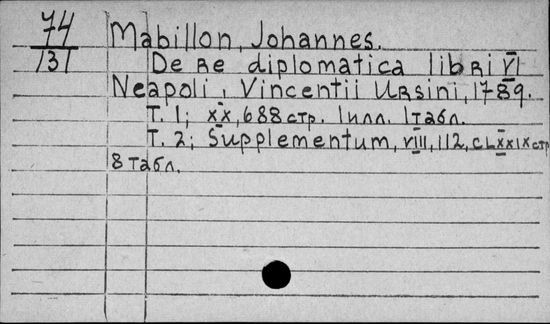 74
131
Mabillon, Johannes.
De Re diplomatica libri VI
Neapoli, Vincentii Ursini, 1789.
T. 1; XX, 688 стр. 1 илл. 1 табл.
T. 2; Supplementum, VIII, 112, CLXXIX стр
8 табл.